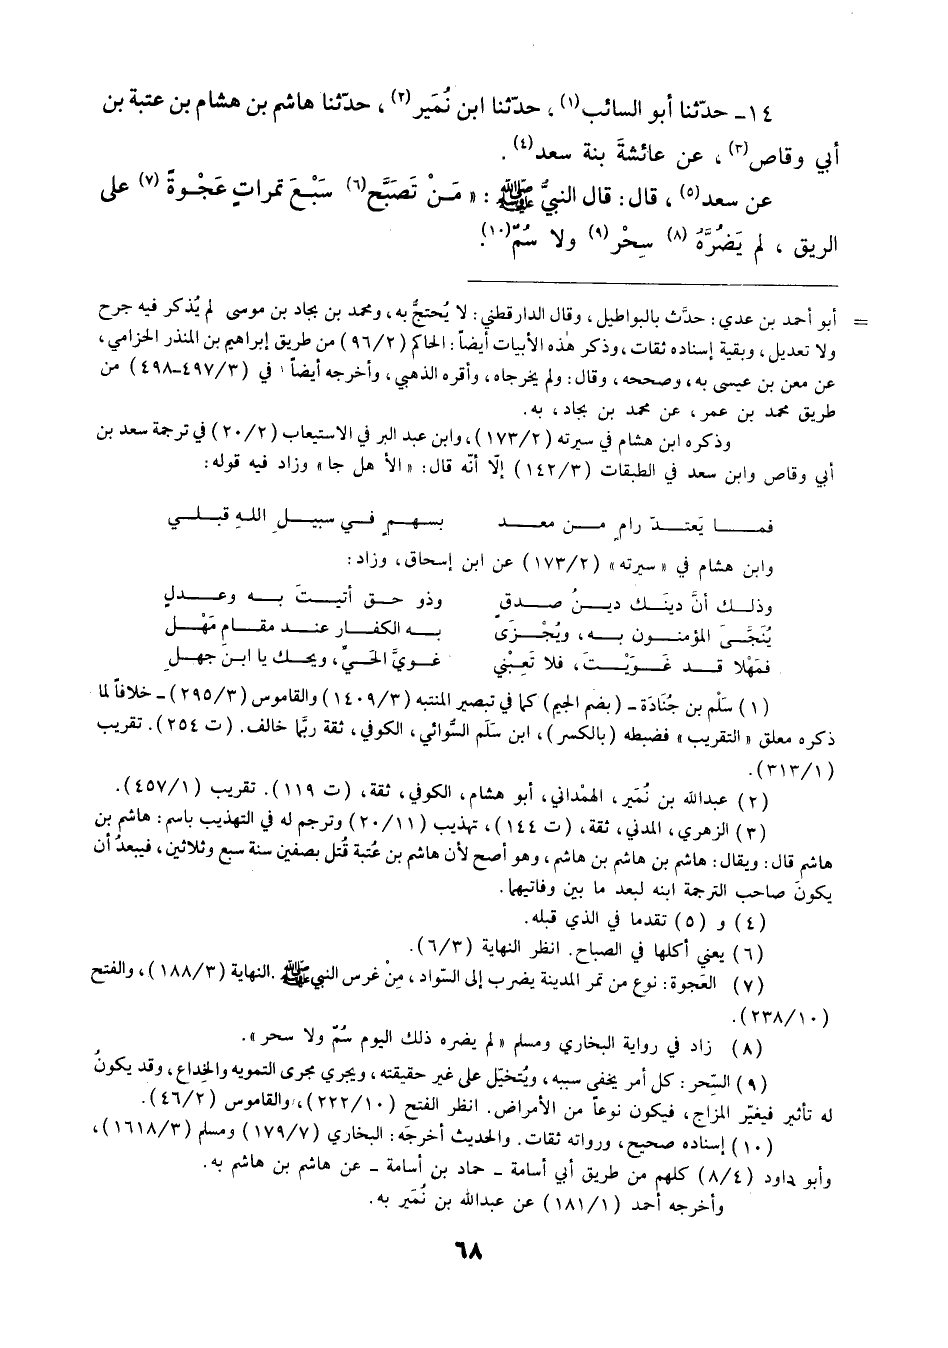 ١٤ـ حدّثنا أبو السائب(١)، حدّثنا ابن نُمَير(٢)، حدّثنا هاشم بن هشام بن عتبة بن
أبي وقاص(٣)، عن عائشةَ بنة سعد(٤).
عن سعد(٥)، قال: قال النبيُّ ﷺ: «مَـنْ تَصَبَّح(٦) سَبْـعَ تمراتٍ عَجْـوةً(٧) على
الريق، لم يَضُرَّهُ(٨) سِحْر(٩) ولا سُمّ(١٠).
= أبو أحمد بن عدي: حدَّث بالبواطيل، وقال الدارقطني: لا يُحتجُّ به، ومحمد بن بجاد بن موسى لم يُذكر فيه جرح
ولا تعديل، وبقية إسناده ثقات، وذكر هٰذه الأبيات أيضاً: الحاكم (٩٦/٢) من طريق إبراهيم بن المنذر الحزامي،
عن معن بن عيسى به، وصححه، وقال: ولم يخرجاه، وأقره الذهبي، وأخرجه أيضاً في (٤٩٧/٣-٤٩٨) من
طريق محمد بن عمر، عن محمد بن بجاد، به.
وذكره ابن هشام في سيرته (١٧٣/٢)، وابن عبد البر في الاستيعاب (٢٠/٢) في ترجمة سعد بن
أبي وقاص وابن سعد في الطبقات (١٤٢/٣) إلّا أنّه قال: «الأ هل جا» وزاد فيه قوله:
فمـــا يَعتـــدّ رامٍ مـــن معـــد بسهـــمٍ فـــي سبيـــل اللـهِ قبـلـي
وابن هشام في «سيرته» (١٧٣/٢) عن ابن إسحاق، وزاد:
وذلـــك أنَّ دينَـــك ديـــنُ صـــدقٍ وذو حـــق أتيـــتَ بـــه وعـــدلِ
يُنَجَّـى المؤمنـــون بـــه، ويُجْـــزَى بـــه الكفـــار عنـــد مقـــام مَهْـــل
فمَهْلا قـــد غَـــوَيْـــتَ، فلا تَعِبْني غـــويَّ الحَيِّ، ويحـك يا ابـنَ جهـلِ
(١) سَلْم بن جُنَادَة ـ (بضم الجيم) كما في تبصير المنتبه (١٤٠٩/٣) والقاموس (٢٩٥/٣) ـ خلافاً لما
ذكره معلق «التقريب» فضبطه (بالكسر)، ابن سَلَم السُّوائي، الكوفي، ثقة ربَّما خالف. (ت ٢٥٤). تقريب
(٣١٣/١).
(٢) عبدالله بن نُمَير، الهمْداني، أبو هشام، الكوفي، ثقة، (ت ١١٩). تقريب (٤٥٧/١).
(٣) الزهري، المدني، ثقة، (ت ١٤٤)، تهذيب (٢٠/١١) وترجم له في التهذيب باسم: هاشم بن
هاشم قال: ويقال: هاشم بن هاشم بن هاشم، وهو أصح لأن هاشم بن عُتبة قُتل بصفين سنة سبع وثلاثين، فيبعدُ أن
يكونَ صاحب الترجمة ابنه لبعد ما بين وفاتيهما.
(٤) و (٥) تقدما في الذي قبله.
(٦) يعني أكلها في الصباح. انظر النهاية (٦/٣).
(٧) العَجوة: نوع من تمر المدينة يضرب إلى السّواد، مِنْ غرس النبي ﷺ. النهاية (١٨٨/٣)، والفتح
(٢٣٨/١٠).
(٨) زاد في رواية البخاري ومسلم «لم يضره ذلك اليوم سُمّ ولا سحر».
(٩) السِّحر: كل أمر يخفى سببه، ويُتخيّل على غير حقيقته، ويجري مجرى التمويه والخِداع، وقد يكونُ
له تأثير فيغيّر المزاج، فيكون نوعاً من الأمراض. انظر الفتح (٢٢٢/١٠)، والقاموس (٤٦/٢).
(١٠) إسناده صحيح، ورواته ثقات. والحديث أخرجَه: البخاري (١٧٩/٧) ومسلم (١٦١٨/٣)،
وأبو داود (٨/٤) كلهم من طريق أبي أسامة ـ حماد بن أسامة ـ عن هاشم بن هاشم به.
وأخرجه أحمد (١٨١/١) عن عبدالله بن نُمَير به.
٦٨